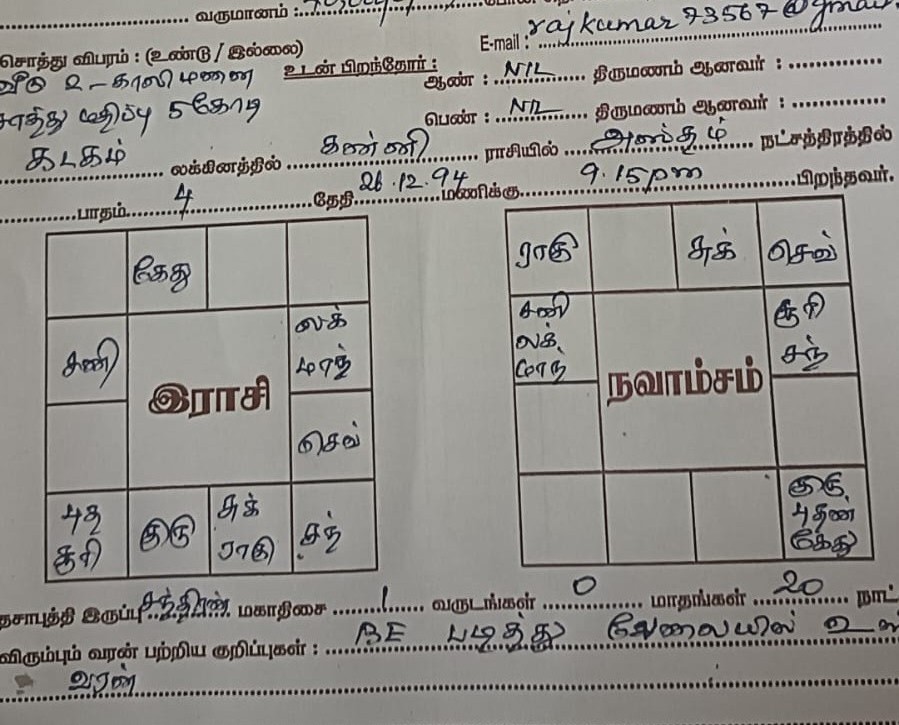 வருமானம் :
E-mail : rajkumar73567@gmai
சொத்து விபரம் : (உண்டு / இல்லை)
வீடு 2 - காலி மனை
உடன் பிறந்தோர் :
ஆண் : NIL திருமணம் ஆனவர் :
சொத்து மதிப்பு 5 கோடி
பெண் : NIL திருமணம் ஆனவர் :
கடகம் லக்கினத்தில் கன்னி ராசியில் அஸ்தம் நட்சத்திரத்தில்
பாதம் 4 தேதி 26.12.94 மணிக்கு 9.15pm பிறந்தவர்.
கேது
சனி
லக்
மாந்
இராசி
செவ்
புத
சூரி
குரு
சுக்
ராகு
சந்
ராகு
சுக்
செவ்
சனி
லக்
மாந்
சூரி
சந்
நவாம்சம்
குரு
புதன்
கேது
தசாபுத்தி இருப்பு சந்திரன் மகாதிசை 1 வருடங்கள் 0 மாதங்கள் 20 நாட்
விரும்பும் வரன் பற்றிய குறிப்புகள் : BE படித்து வேலையில் உள்
வரன்